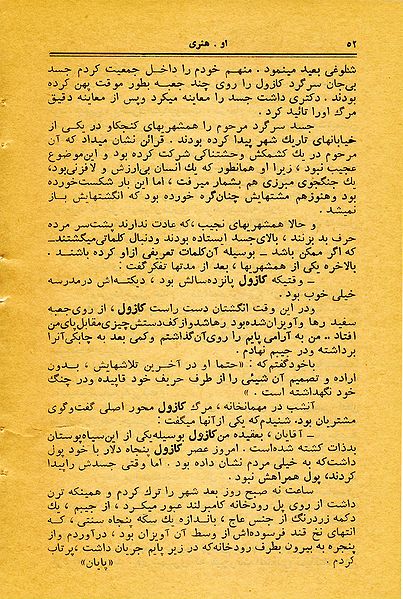 ۵۲
او . هنری
شلوغی بعید مینمود . منهم خودم را داخل جمعیت کردم جسد
بی‌جان سرگرد کازول را روی چند جعبه بطور موقت پهن کرده
بودند . دکتری داشت جسد را معاینه میکرد وپس از معاینه دقیق
مرگ اورا تائید کرد .
جسد سرگرد مرحوم را همشهریهای کنجکاو در یکی از
خیابانهای تاریك شهر پیدا کرده بودند . قرائن نشان میداد که آن
مرحوم در یك کشمکش وحشتناکی شرکت کرده بود و این‌موضوع
عجیب نبود ، زیرا او همانطور که یك انسان بی‌ارزش و لافزنی‌بود،
یك جنگجوی مبرزی هم بشمار میرفت ، اما این بار شکست‌خورده
بود وهنوزهم مشتهایش چنان‌گره خورده بود که انگشتهایش باز
نمیشد .
و حالا همشهریهای نجیب ،که عادت ندارند پشت‌سر مرده
حرف بد بزنند ، بالای‌جسد ایستاده بودند ودنبال کلماتی‌میگشتندــ
که اگر ممکن باشد ــ بوسیله آن‌کلمات تعریفی ازاو کرده باشند .
بالاخره یکی از همشهریها ، بعد از مدتها تفکرگفت :
ــ وقتیکه کازول پانزده‌سالش بود ، دیکته‌اش درمدرسه
خیلی خوب بود .
ودر این وقت انگشتان دست راست کازول ، از روی‌جعبه
سفید رها وآویزان شده‌بود رهاشدوازکف‌دستش‌چیزی‌مقابل‌پای‌من
افتاد .. من به آرامی پایم را روی‌آن‌گذاشتم وکمی بعد به چابکی‌آنرا
برداشته ودر جیبم نهادم .
باخودگفتم‌که : «حتما او در آخرین تلاشهایش ، بدون
اراده و تصمیم آن شیئی را از طرف حریف خود قاپیده ودر چنگ
خود نگهداشته است . »
آنشب در مهمانخانه ، مرگ کازول محور اصلی گفت‌وگوی
مشتریان بود. شنیدم‌که یکی ازآنها میگفت :
ــ آقایان ، بعقیده من‌کازول بوسیله‌یکی از این‌سیاه‌پوستان
بدذات کشته شده‌است . امروز عصر کازول پنجاه دلار با خود پول
داشت‌که به خیلی مردم نشان داده بود . اما وقتی جسدش راپیدا
کردند، پول همراهش نبود .
ساعت نه صبح روز بعد شهر را ترك کردم و همینکه ترن
داشت از روی پل رودخانه کامبرلند عبور میکرد ، از جیبم ، یك
دکمه زردرنگ از جنس عاج ، باندازه یك سکه پنجاه سنتی ، که
انتهای نخ قند فرسوده‌اش از وسط آن آویزان بود ، درآوردم واز
پنجره به بیرون بطرف رودخانه‌که در زیر پایم جریان داشت ،پرتاب
کردم .
«پایان»